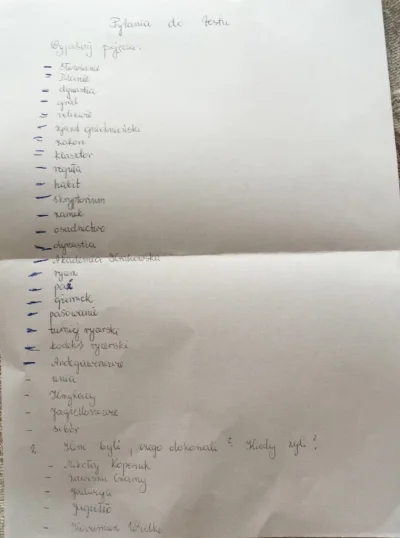 Pytania do testu
Wyjaśnij pojęcia.
- Słowianie
- Plemię
- dynastia
- gród
- relikwie
- zjazd gnieźnieński
- zakon
- klasztor
- reguła
- habit
- skryptorium
- zamek
- osadnictwo
- dynastia
- Akademia Krakowska
- rycerz
- paź
- giermek
- pasowanie
- turniej rycerski
- kodeks rycerski
- Andegawenowie
- unia
- Krzyżacy
- Jagiellonowie
- sobór
2. Kim byli, czego dokonali? Kiedy żyli?
- Mikołaj Kopernik
- Zawisza Czarny
- Jadwiga
- Jagiełło
- Kazimierz Wielki